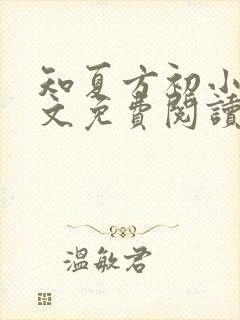 知夏方初小
文免費閱讀
溫敏君